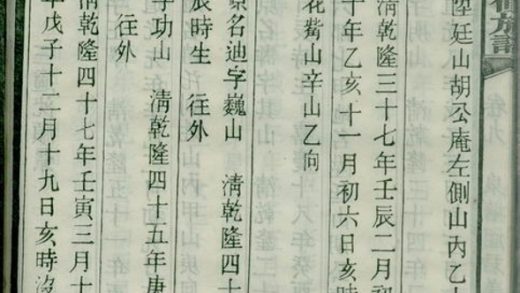 陞廷山胡公庵左側山内乙
清乾隆三十七年壬辰二月初
十年乙亥十一月初六日亥時
花觜山辛山乙向
原名迪字巍山 清乾隆四十
辰時生 往外
字功山 清乾隆四十五年庚
往外
清乾隆四十七年壬寅三月十
年戊子十二月十九日亥時沒